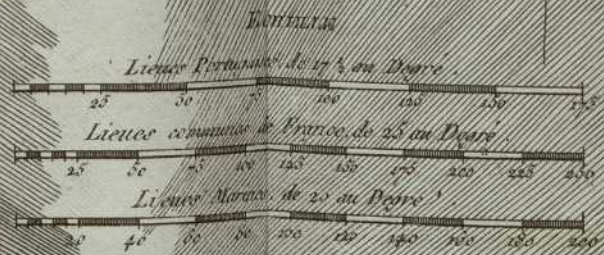 Lieues Portugaises de 17 ½ au Degré.
25 50 75 100 125 150 175
Lieues communes de France, de 25 au Degré.
25 50 75 100 125 150 175 200 225 250
Lieues Marines, de 20 au Degré
20 40 60 80 100 120 140 160 180 200